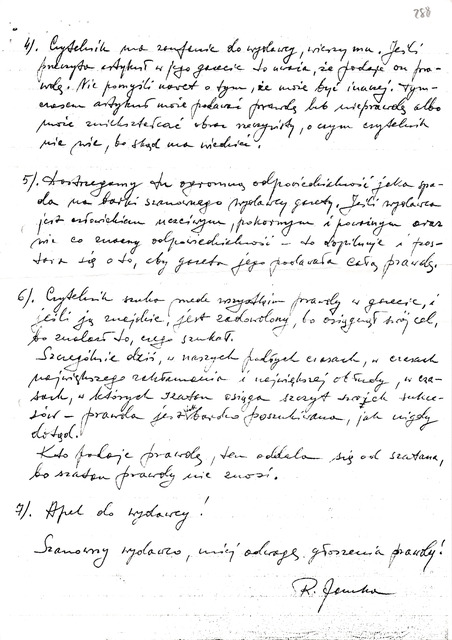 288
4). Czytelnik ma zaufanie do wydawcy, wierzy mu. Jeśli
przeczyta artykuł w jego gazecie to uważa, że podaje on pra-
wdę. Nie pomyśli nawet o tym, że może być inaczej. Tym-
czasem artykuł może podawać prawdę lub nieprawdę albo
może zniekształcać obraz rzeczywisty, o czym czytelnik
nie wie, bo skąd ma wiedzieć.
5). Dostrzegamy tu ogromną odpowiedzialność jaka spa-
da na barki szanownego wydawcy gazety. Jeśli wydawca
jest człowiekiem uczciwym, pokornym i poważnym oraz
wie co znaczy odpowiedzialność – to dopilnuje i pos-
tara się o to, aby gazeta jego podawała całą prawdę.
6). Czytelnik szuka przede wszystkim prawdy w gazecie, i
jeśli ją znajdzie, jest zadowolony, bo osiągnął swój cel,
bo znalazł to, czego szukał.
Szczególnie dziś, w naszych podłych czasach, w czasach
największego zakłamania i największej obłudy, w cza-
sach, w których szatan osiąga szczyt swoich sukce-
sów – prawda jest bardzo poszukiwana, jak nigdy
dotąd.
Kto podaje prawdę, ten oddala się od szatana,
bo szatan prawdy nie znosi.
7). Apel do wydawcy!
Szanowny wydawco, miej odwagę głoszenia prawdy!
R.